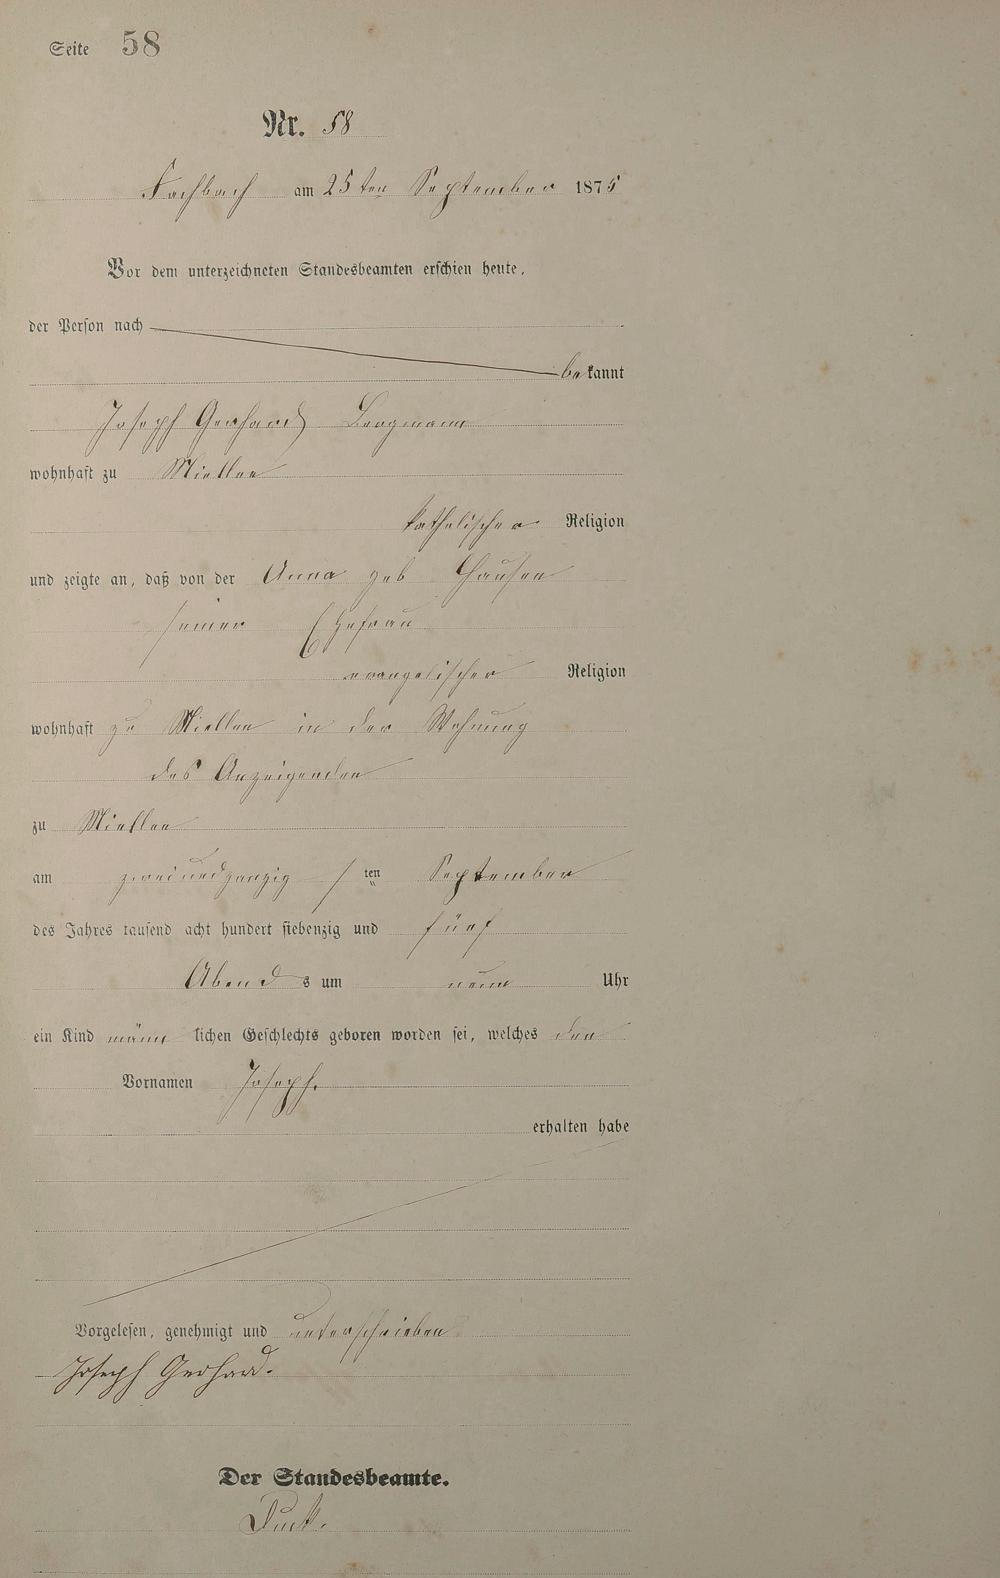 Seite 58
Nr. 58
Fachbach am 25ten September 1875
Vor dem unterzeichneten Standesbeamten erschien heute,
der Person nach
bekannt
Joseph Gerhard Bergmann
wohnhaft zu Miellen
katholischer Religion
und zeigte an, daß von der Anna geb Hausen
seiner Ehefrau
evangelischer Religion
wohnhaft zu Miellen in der Wohnung
des Anzeigenden
zu Miellen
am zweiundzwanzig sten September
des Jahres tausend acht hundert siebenzig und fünf
Abends um neun Uhr
ein Kind männlichen Geschlechts geboren worden sei, welches den
Vornamen Joseph.
erhalten habe
Vorgelesen, genehmigt und unterschrieben
Joseph Gerhard.
Der Standesbeamte.